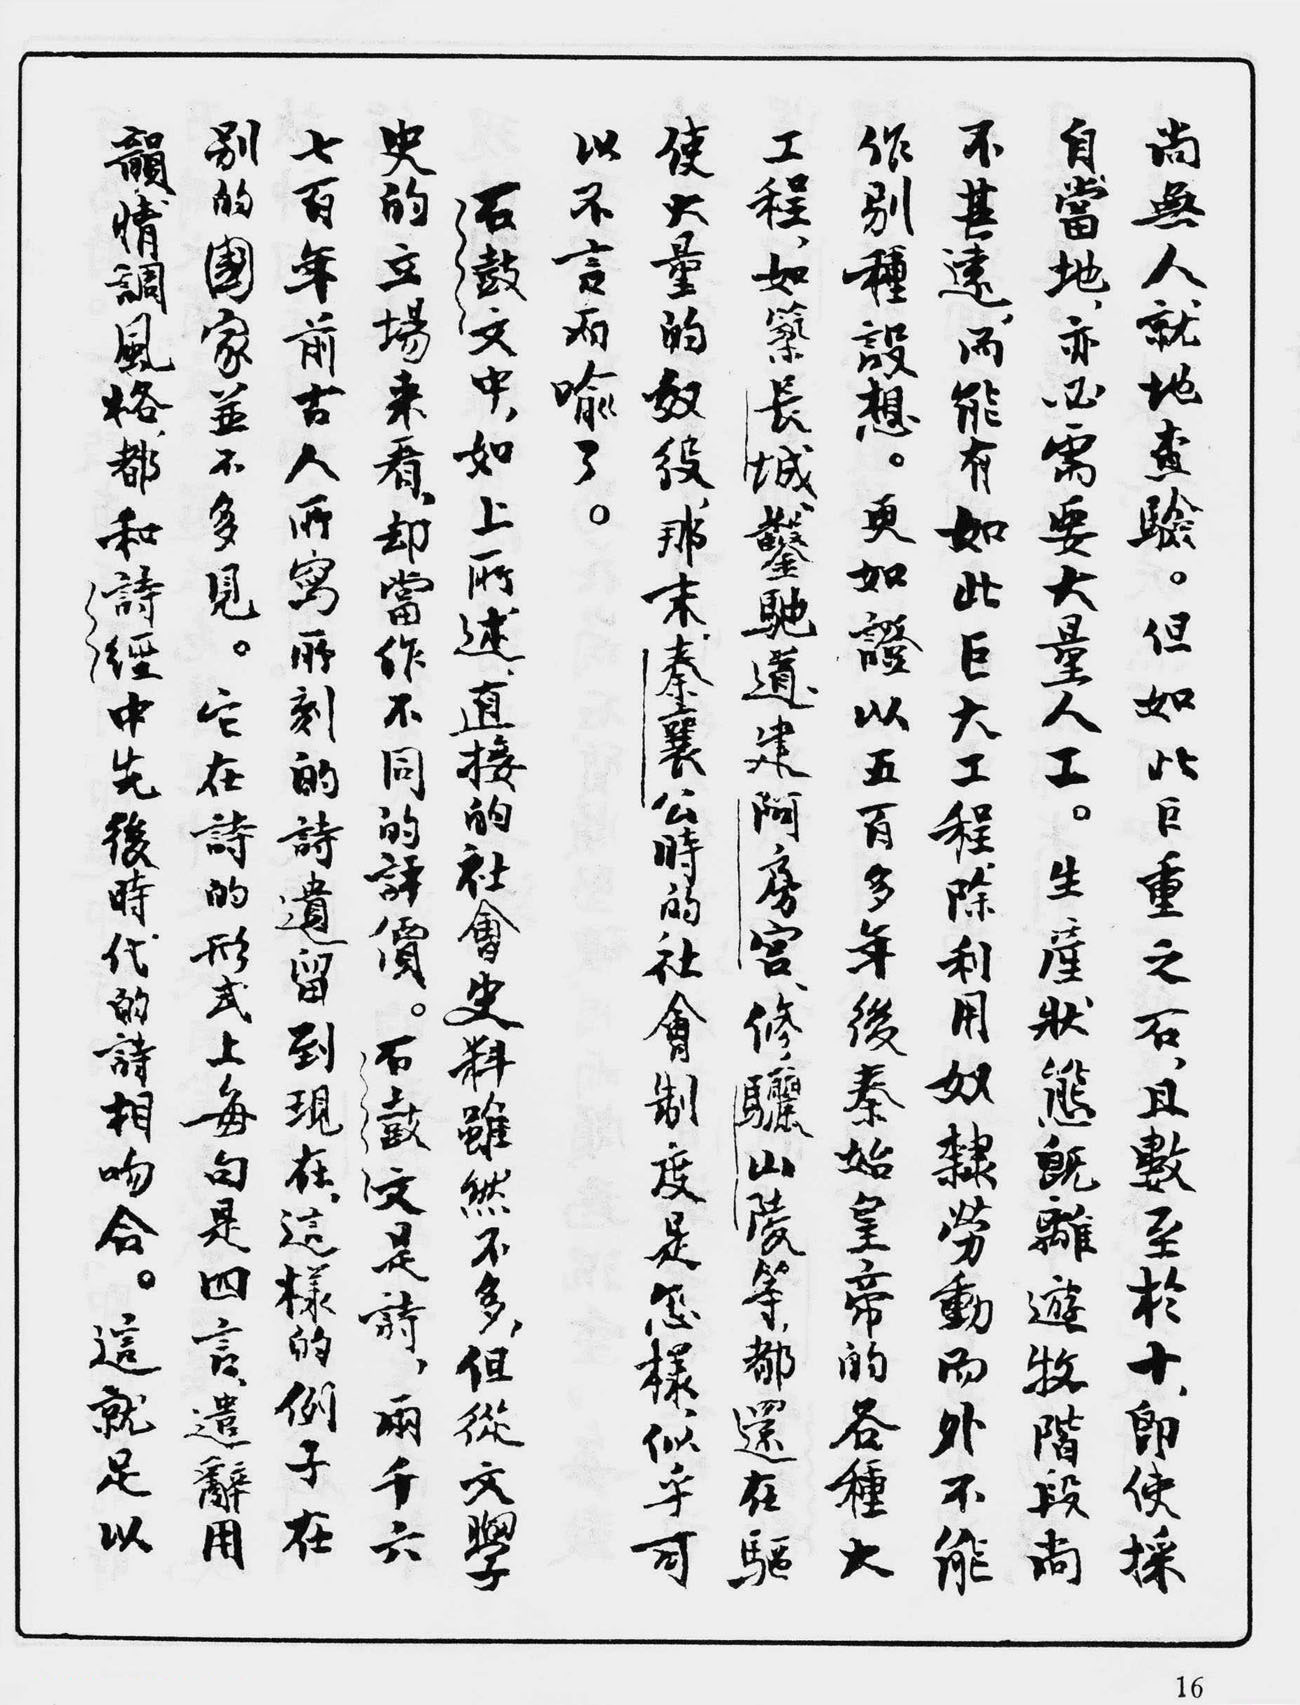 尚無人就地查驗。但如此巨重之石、且數至於十、即使採
自當地、亦必需要大量人工。生產狀態既離遊牧階段尚
不甚遠、而能有如此巨大工程、除利用奴隸勞動而外不能
作別種設想。更如證以五百多年後秦始皇帝的各種大
工程、如築長城、鑿馳道、建阿房宮、修驪山陵等、都還在驅
使大量的奴役、那末、秦襄公時的社會制度是怎樣、似乎可
以不言而喻了。
石鼓文中、如上所述、直接的社會史料雖然不多、但從文學
史的立場來看、却當作不同的評價。石鼓文是詩、兩千六
七百年前古人所寫所刻的詩遺留到現在、這樣的例子在
別的國家並不多見。它在詩的形式上每句是四言、遣辭用
韻、情調風格、都和詩經中先後時代的詩相吻合。這就足以
16